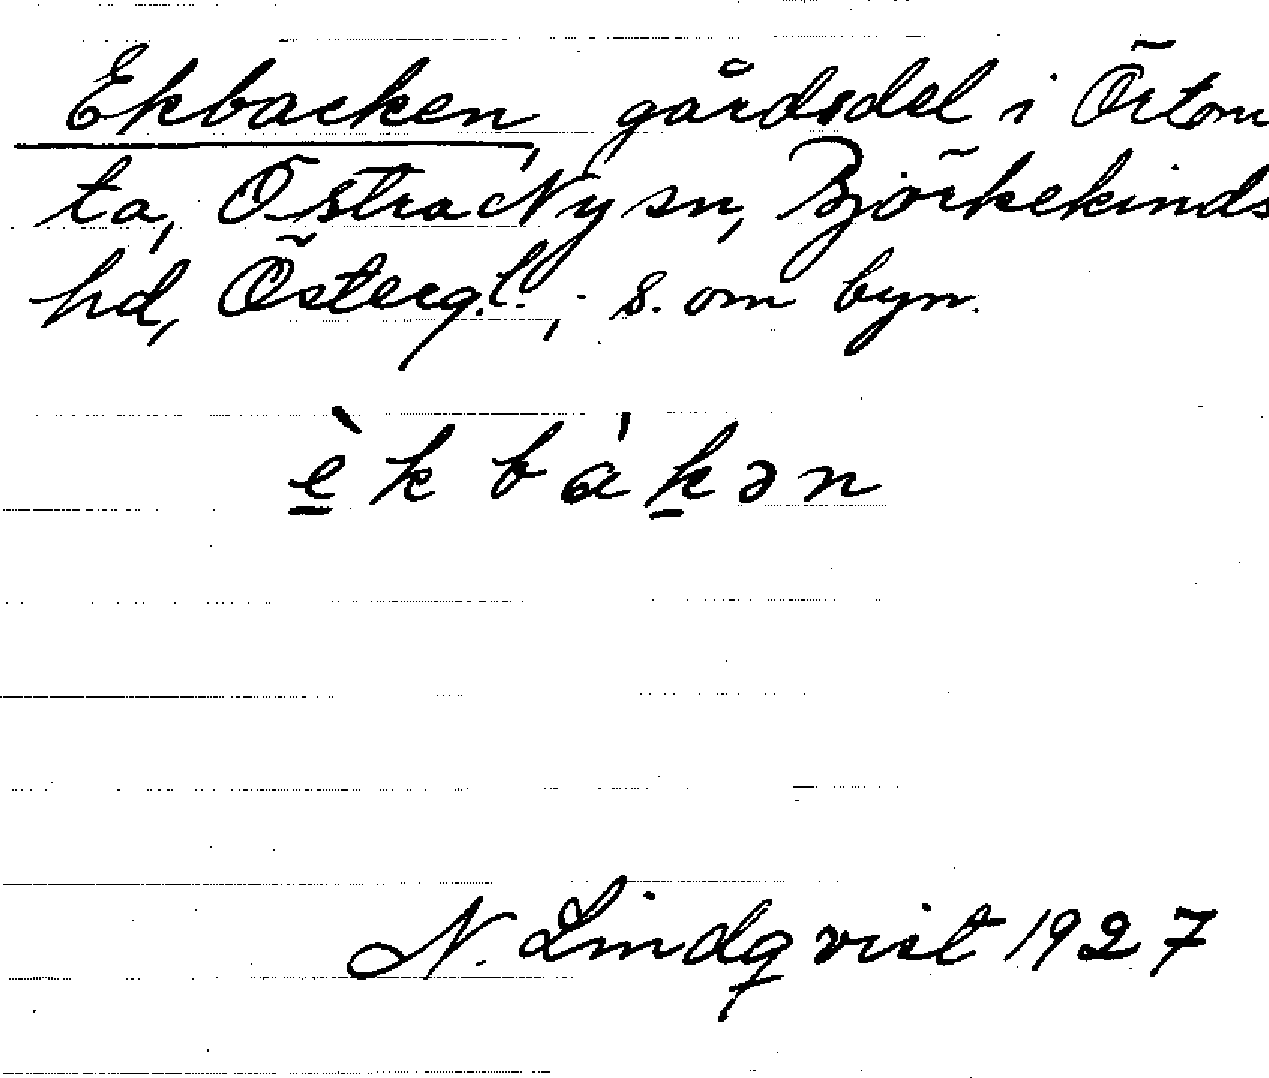 Ekbacken, gårdsdel i Örtom
ta, Östra Ny sn, Björkekinds
hd, Östergl., s. om byn.
è̱kbàḵən
N. Lindqvist 1927